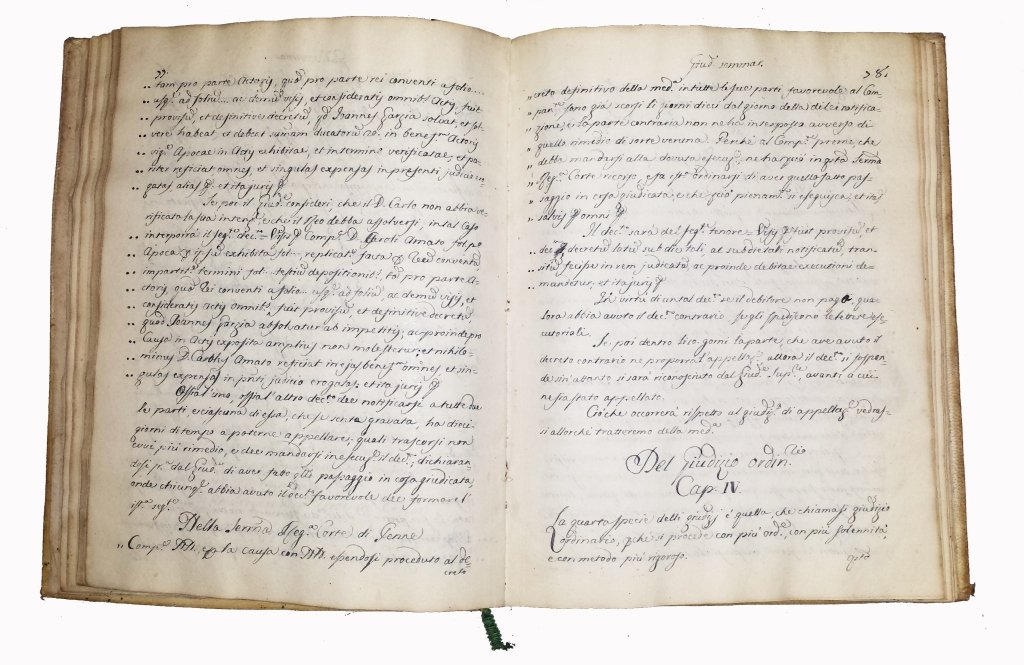 77.
.. tam pro parte Actoris, quam pro parte rei conventi a folio...
.. usq. ad folium... ac demum visis, et consideratis omnibus Actis, fuit
.. provisum, et definitive decretum, qd Joannes Garzia solvat, et sol-
.. vere habeat, et debeat summam ducatorum 20. in benef.m Actoris
.. vig.e Apocae in Actis exhibitae, et in termine verificatae, et pa-
.. riter reficiat omnes, et singulas expensas in presenti judicio ero-
.. gatas alias et ita juris
Se poi il Giud.e consideri, che il D. Carlo non abbia ve-
rificata la sua intenz.e e che il Reo debba assolversi, in tal caso
interporrà il seg.te decr.o = Visis Comp.e D. Caroli Amato fol. po
Apoca ipsum exhibita fol.. replicat.e facta Reum conventum,
impartitis termini fol.. testium depositionibus tam pro parte A-
ctoris quam Rei conventi a folio... usq. ad folium, ac demum visis, et
consideratis Actis omnibus, fuit provisum, et definitive decretum
quod Joannes Garzia absolvatur ab impetitis; ac proinde pro
Causa in Actis exposita amplius non molestetur; et nihilo-
minus D. Carolus Amato reficiat in ejus benef.m omnes et sin-
gulas expensas in p.nti judicio erogatas; et ita juris
Ossia l'uno, ossia l'altro decr.o dee notificarsi a tutte due
le parti, e ciascuna di essa, che si senta gravata, ha dieci
giorni di tempo a poterne appellare; quali trascorsi non
evvi più rimedio, e dee mandarsi in esecuz.e il decr.o, dichiaran
dosi pr.a dal Giud.e di aver fatto passaggio in cosa giudicata,
onde chiunq.e abbia avuto il decr.o favorevole dee formare l'
ist.a seg.te
Nella Corte di Penne
,, Comp.e la causa con essendosi proceduto al de-
creto
Giud. sommar.
78.
,, creto definitivo della med.a in tutte le sue parti favorevole al Com-
,, par.e sono già scorsi li giorni dieci dal giorno della di lei notifica-
,, zione, e la parte contraria non ne ha interposto avverso di
,, quello rimedio di sorte veruna. Perchè al Comp.e preme, che
,, debba mandarsi alla dovuta esecuz.e ne ha quio in q.ta
,, Corte ricorso, e fa ist.a ordinarsi di aver quello fatto pas-
,, saggio in cosa giudicata, e che ciò pienam.e si eseguisca, et ita
,, salvis omni
Il decr.o sarà del seg.te tenore = Visis fuit provisum, et
.. decr.m decretum latum sub die tali, ac sub die tali notificatum, tran-
.. situm fecisse in rem judicatam, ac proinde debitae executioni de-
.. mandetur, et ita juris
In virtù di un tal decr.o se il debitore non paga, qua-
lora abbia avuto il decr.o contrario se gli spediscono le lettere ese-
cutoriali.
Se poi dentro li 10 giorni la parte, che ave avuto il
decreto contrario ne proponga l'appellaz.e, allora il decr.o si sospen-
de sin'a tanto si sarà riconosciuto dal Giud.e Sup.re, avanti a cui
ne sia stato appellato.
Ciò che occorrerà rispetto al giudiz.o di appellaz.e vedras-
si allorchè tratteremo della med.a
Del Giudizio ordin.rio
Cap. IV.
La quarta specie delli giudizj è quella, che chiamasi giudizio
ordinario, p.chè si procede con più ord.e, con più solennità,
e con metodo più rigoroso.
q.sto